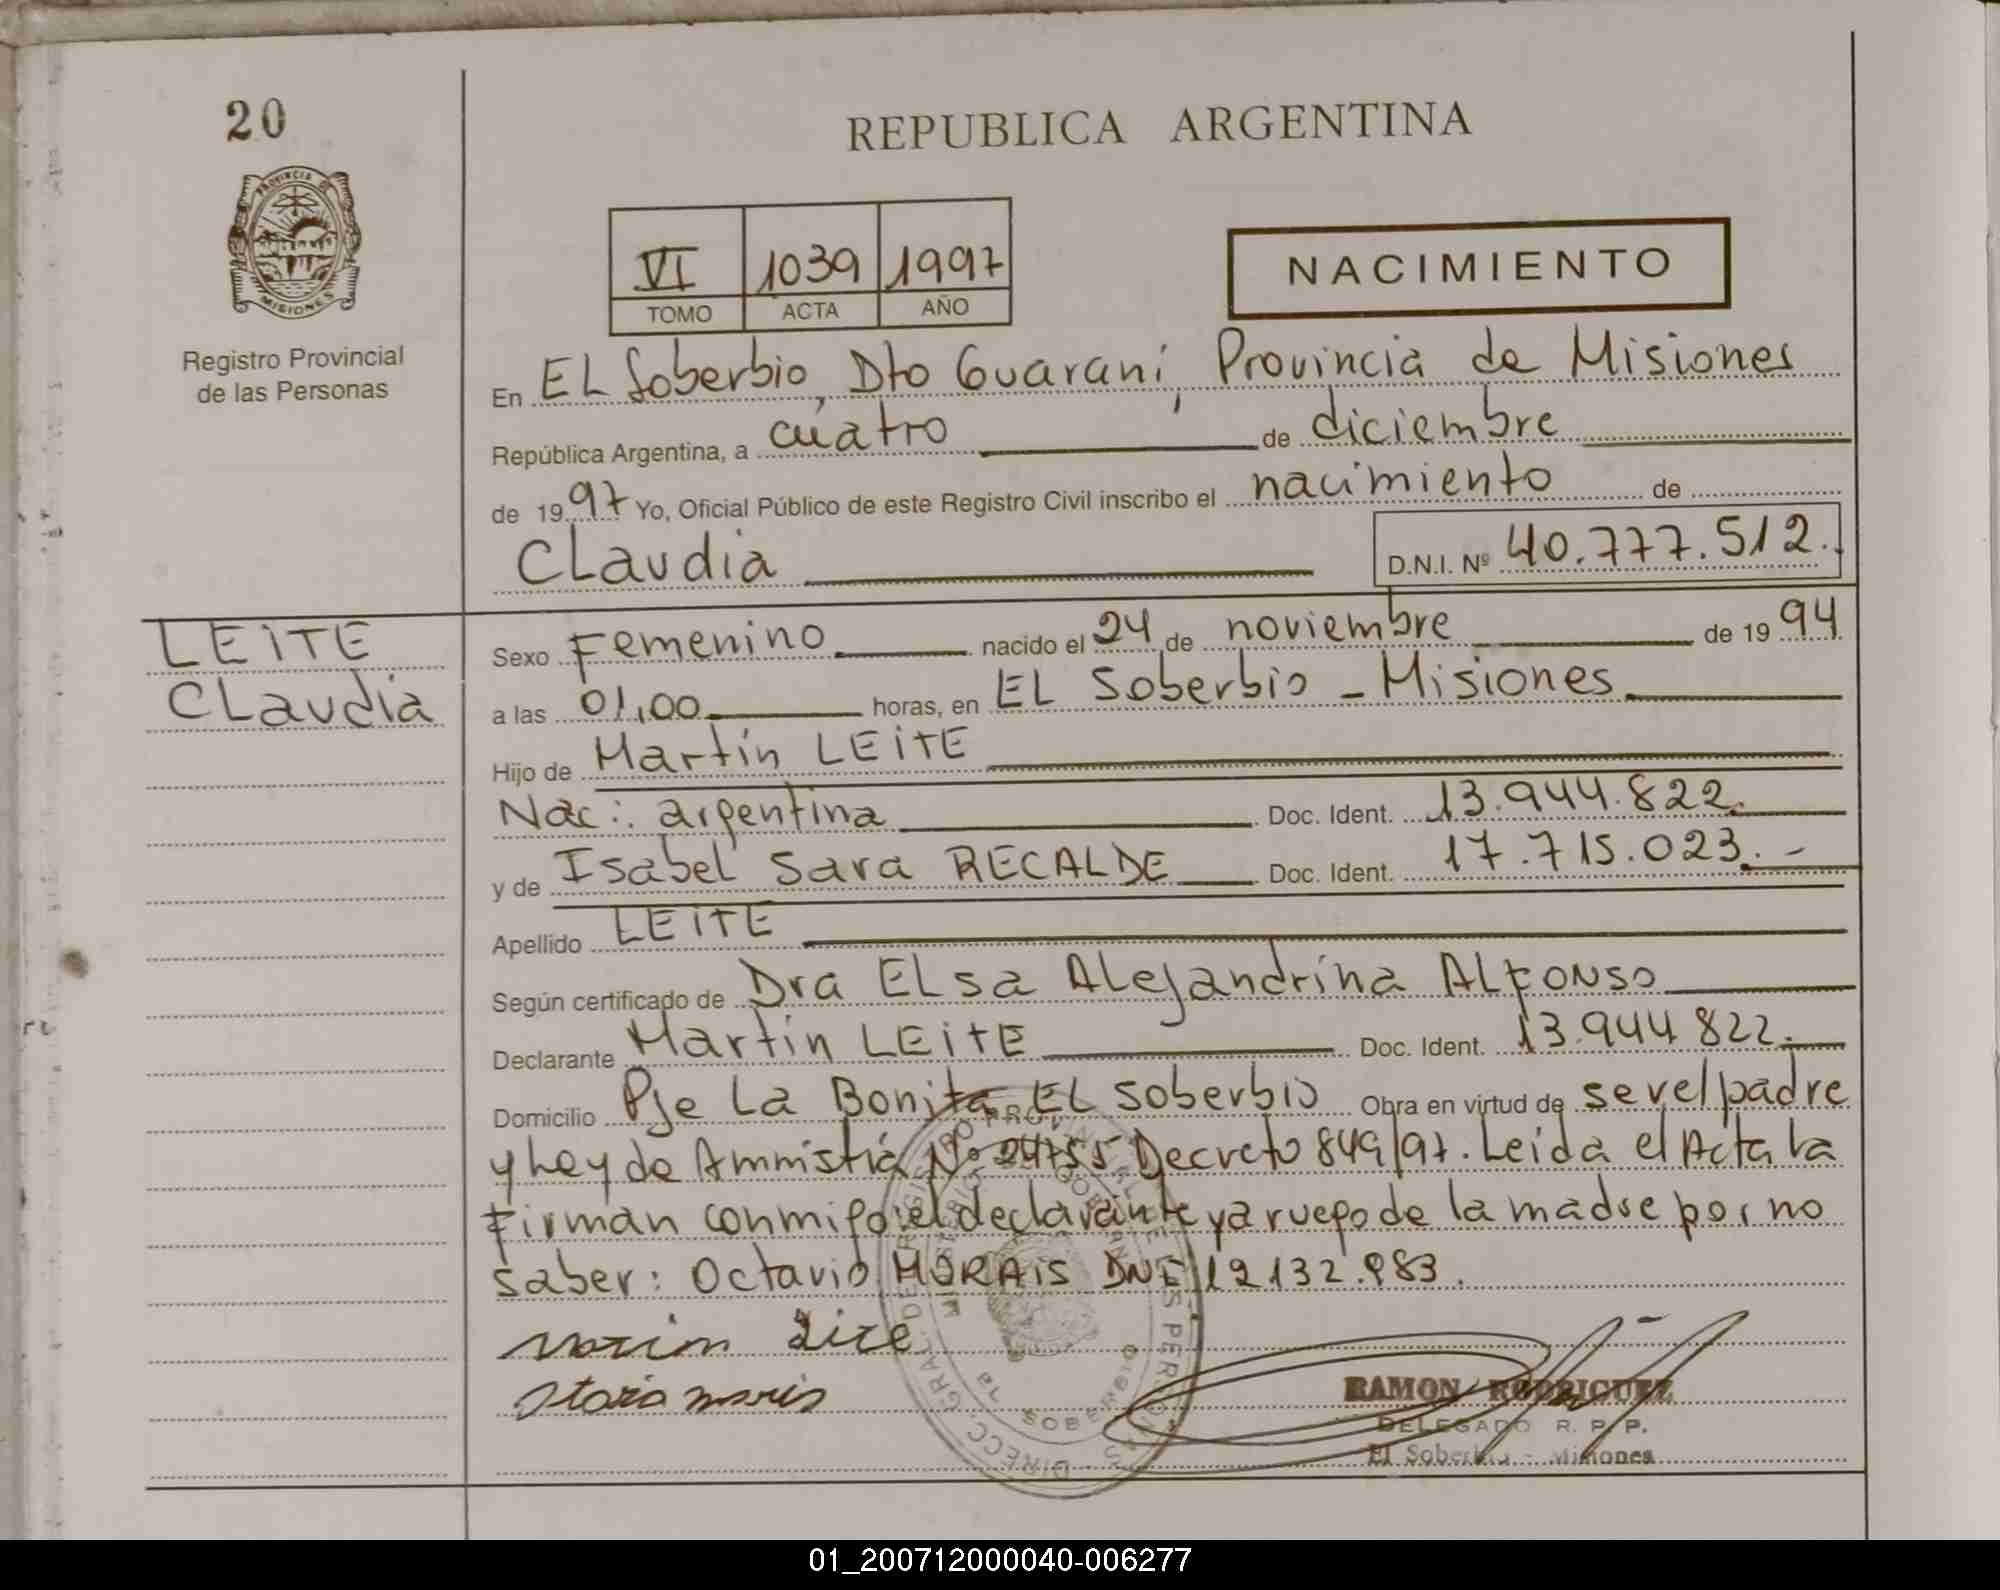 20
REPUBLICA ARGENTINA
PROVINCIA DE
MISIONES
Registro Provincial
de las Personas
VI 1039 1997
TOMO ACTA AÑO
NACIMIENTO
En EL Soberbio, Dto Guaraní, Provincia de Misiones
República Argentina, a cuatro de diciembre
de 1997 Yo, Oficial Público de este Registro Civil inscribo el nacimiento de
CLaudia D.N.I. Nº 40.777.512.
LEiTE
CLaudia
Sexo Femenino nacido el 24 de noviembre de 1994
a las 01,00 horas, en EL Soberbio - Misiones
Hijo de Martín LEiTE
Nac: argentina Doc. Ident. 13.944.822.
y de Isabel Sara RECALDE Doc. Ident. 17.715.023.-
Apellido LEiTE
Según certificado de Dra ELsa ALejandrina ALFONSO
Declarante Martín LEiTE Doc. Ident. 13.944.822.
Domicilio Pje La Bonita EL Soberbio Obra en virtud de ser el padre
y Ley de Amnistía Nº 24755 Decreto 849/97. Leida el Acta la
Firman conmigo el declarante y a ruego de la madre por no
saber: Octavio MORAiS DNI 12132.983.
RAMON RODRIGUEZ
DELEGADO R. P. P.
El Soberbio - Misiones
SOBERBIO
01_200712000040-006277